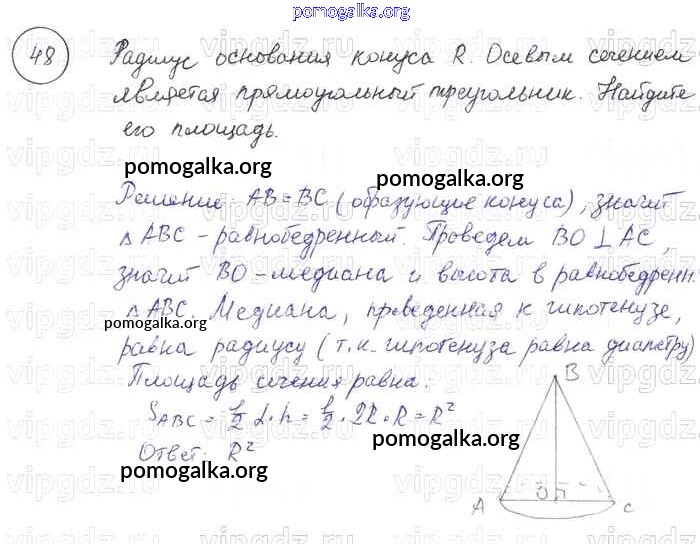 pomogalka.org
48 Радиус основания конуса R. Осевым сечением
является прямоугольный треугольник. Найдите
его площадь.
pomogalka.org
pomogalka.org
Решение: AB = BC (образующие конуса), значит
△ ABC - равнобедренный. Проведем BO ⊥ AC,
значит BO - медиана и высота в равнобедренн.
△ ABC. Медиана, проведенная к гипотенузе,
pomogalka.org
равна радиусу (т.к. гипотенуза равна диаметру)
Площадь сечения равна:
S ABC = 1/2 d · h = 1/2 · 2R · R = R²
Ответ: R²
pomogalka.org
B
A O C
pomogalka.org
vipgdz.ru